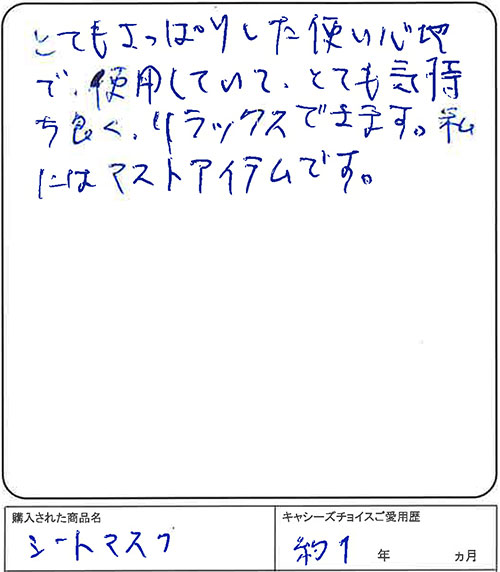 とてもさっぱりした使い心地
で、使用していて、とても気持
ち良く、リラックスできます。私
にはマストアイテムです。
購入された商品名
シートマスク
キャシーズチョイスご愛用歴
約1年 ヵ月